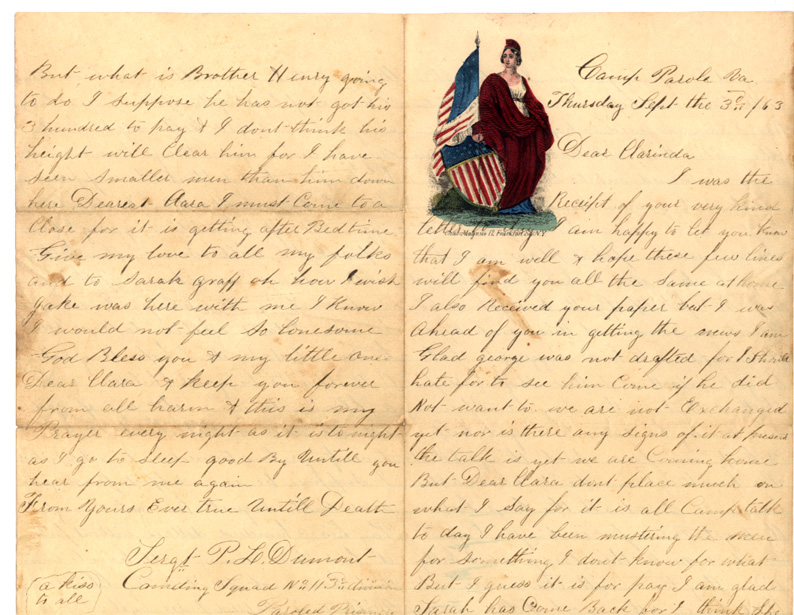 Camp Parole Va
Thursday Sept the 3rd /63
Dear Clarinda
I was the
Receipt of your very kind
letter to day I am happy to let you know
that I am well & hope these few lines
will find you all the same at home
I also Received your paper but I was
Ahead of you in getting the news I am
Glad george was not drafted for I Should
hate for to see him Come if he did
Not want to we are not Exchanged
yet nor is there any signs of it at present
the talk is yet we are Coming home
But Dear Clara dont place much on
what I say for it is all Camp talk
to day I have been mustering the men
for something I dont know for what
But I guess it is for pay I am glad
Sarah has Come Back for I think she
But what is Brother Henry going
to do I suppose he has not got his
3 hundred to pay & I dont think his
height will Clear him for I have
seen smaller men than him down
here Dearest Clara I must Come to a
Close for it is getting after Bedtime
Give my love to all my folks
and to Sarah graff oh how I wish
gake was here with me I know
I would not feel so lonesome
God Bless you & my little one
Dear Clara & keep you forever
from all harm & this is my
Prayer every night as it is to night
as I go to sleep good By Untill you
hear from me again
From Yours Ever true Untill Death
Sergt P. L. Dumont
Comding Squad No 11 3rd division
Paroled Prisoners
a kiss
to all